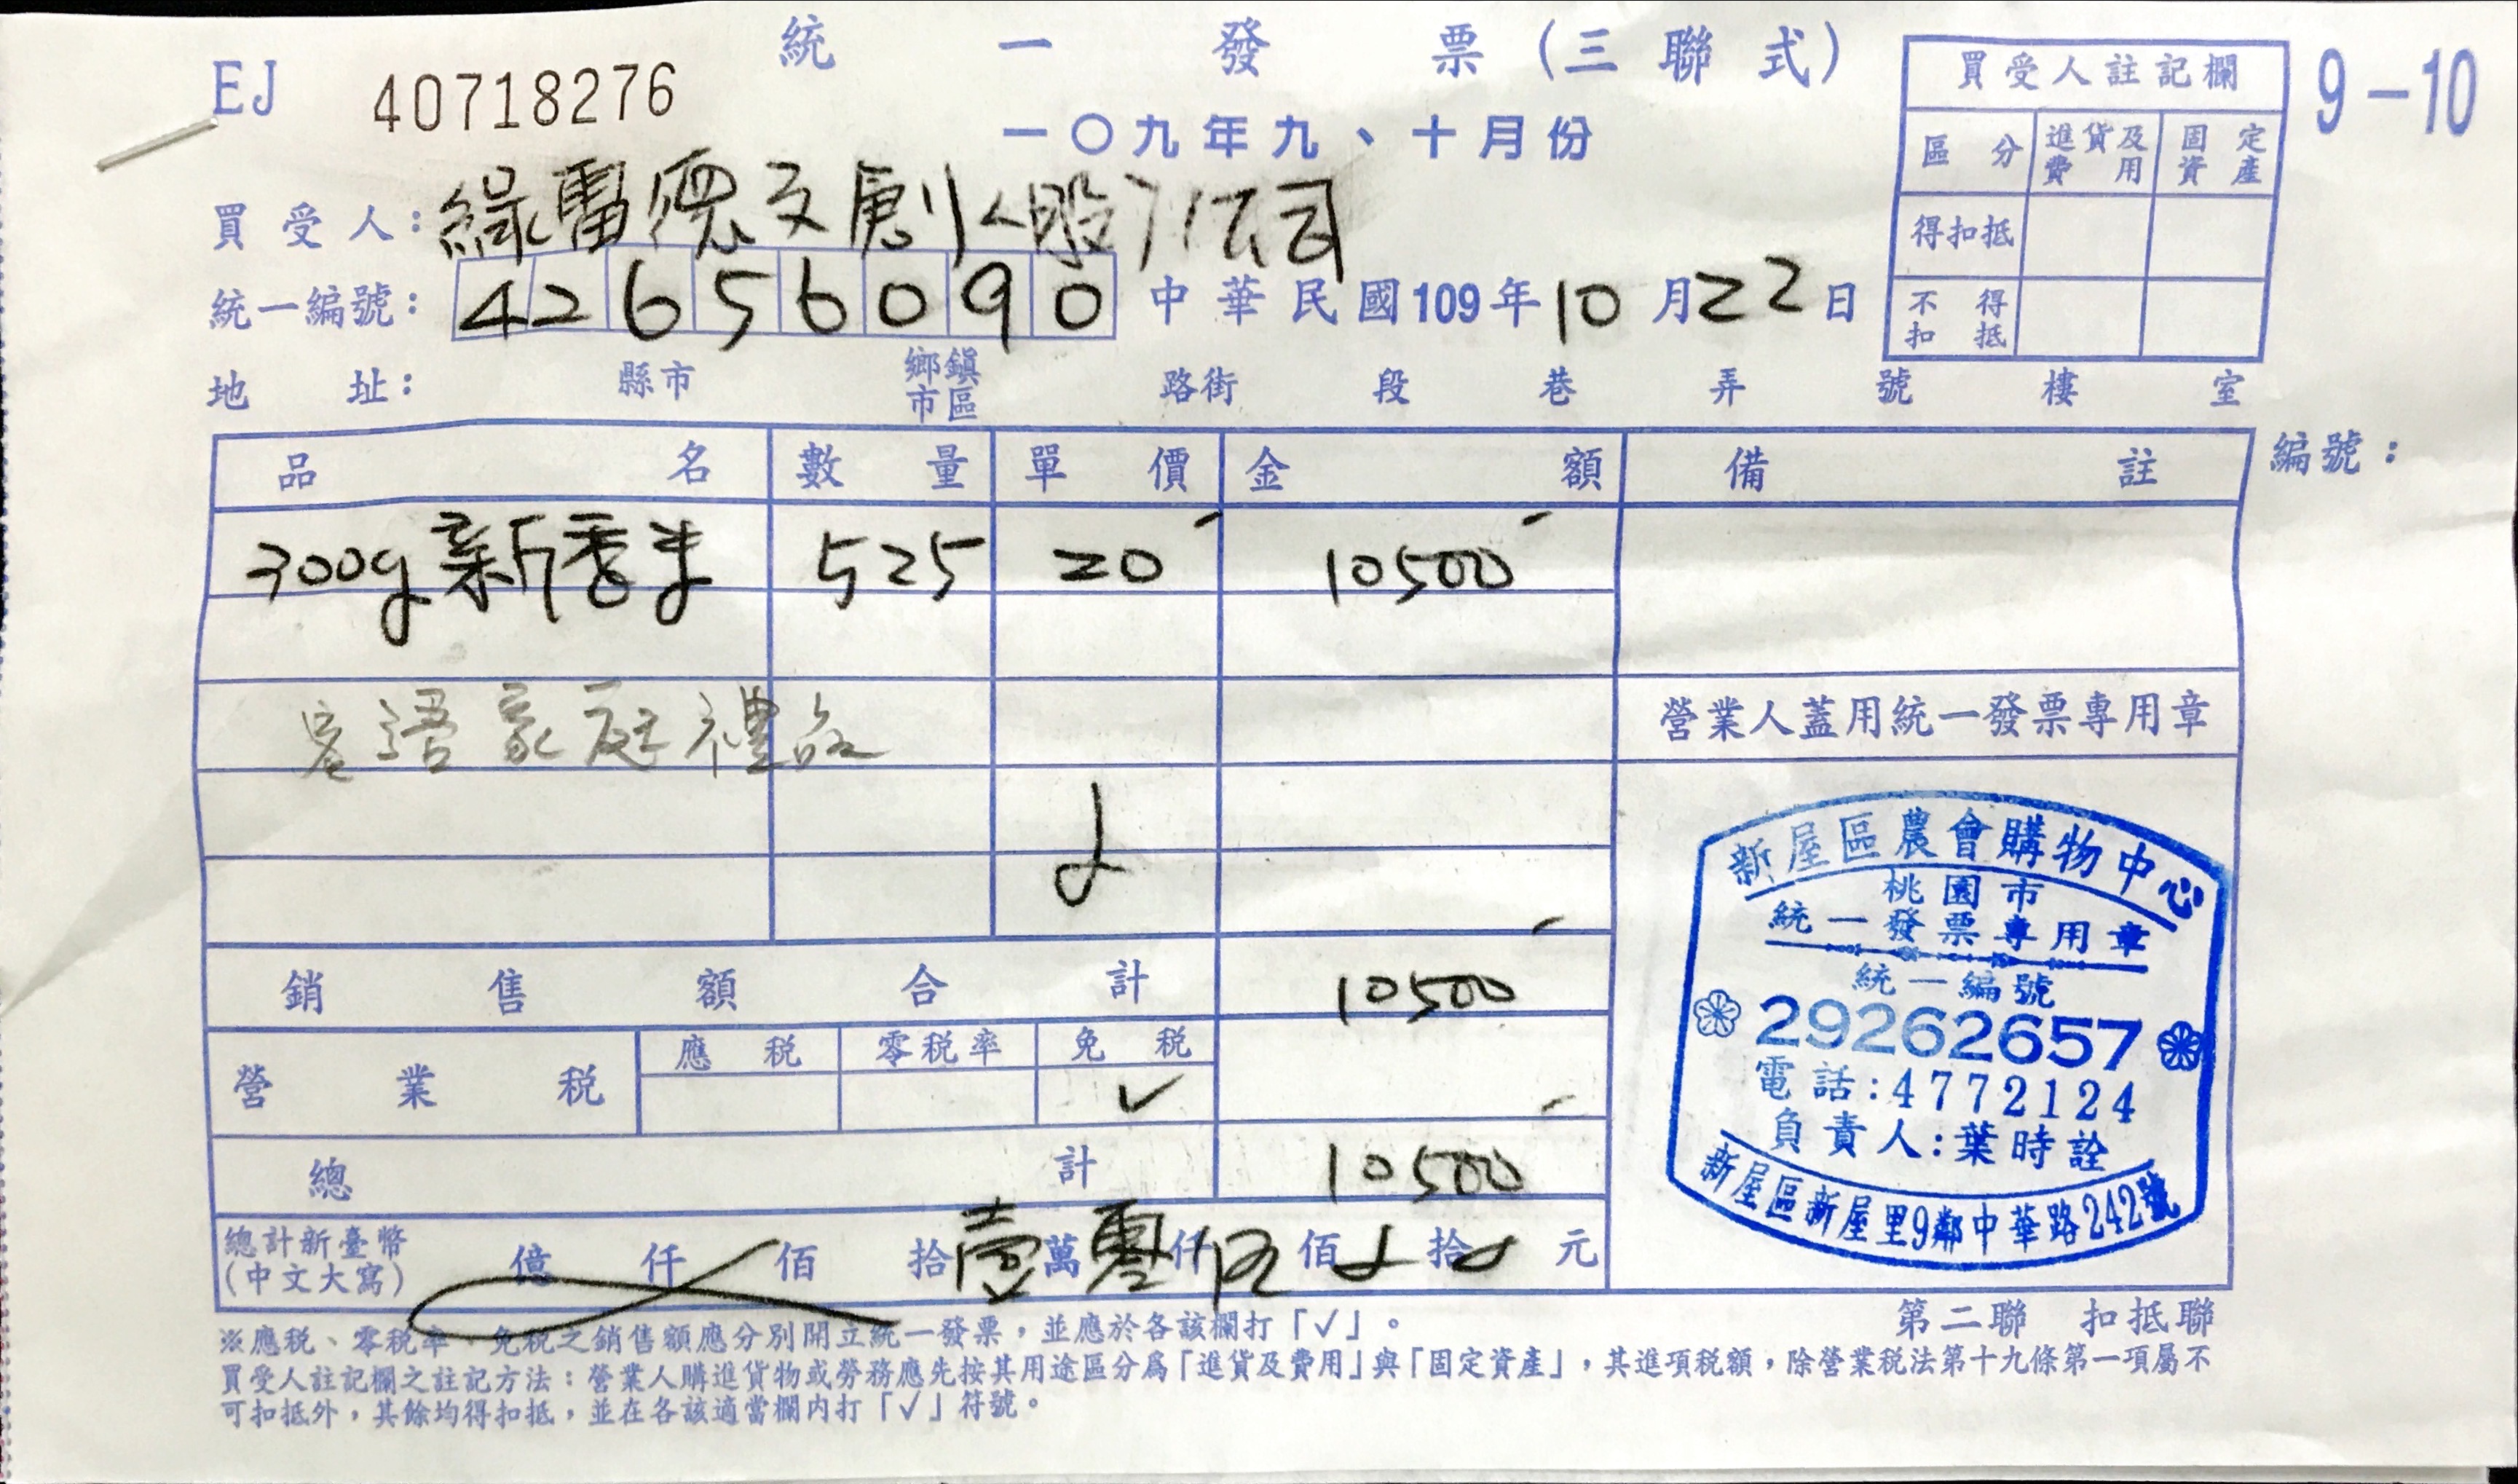 統一發票(三聯式)
EJ 40718276
一〇九年九、十月份
9-10
買受人註記欄
區分 進貨及費用 固定資產
得扣抵
不得扣抵
買受人:綠雷德文創股公司
統一編號:42656090 中華民國109年10月22日
地址: 縣市 鄉鎮市區 路街 段 巷 弄 號 樓 室
編號:
品名 數量 單價 金額 備註
300g新香米 525 20 10500
家庭禮
營業人蓋用統一發票專用章
銷售額合計 10500
營業稅 應稅 零稅率 免稅
✓
總計 10500
總計新臺幣(中文大寫) 億 仟 佰 拾壹萬零仟伍佰 拾 元
新屋區農會購物中心
桃園市
統一發票專用章
統一編號
29262657
電話:4772124
負責人:葉時詮
新屋區新屋里9鄰中華路242號
第二聯 扣抵聯
※應稅、零稅率、免稅之銷售額應分別開立統一發票,並應於各該欄打「✓」。
買受人註記欄之註記方法:營業人購進貨物或勞務應先按其用途區分為「進貨及費用」與「固定資產」,其進項稅額,除營業稅法第十九條第一項屬不
可扣抵外,其餘均得扣抵,並在各該適當欄內打「✓」符號。